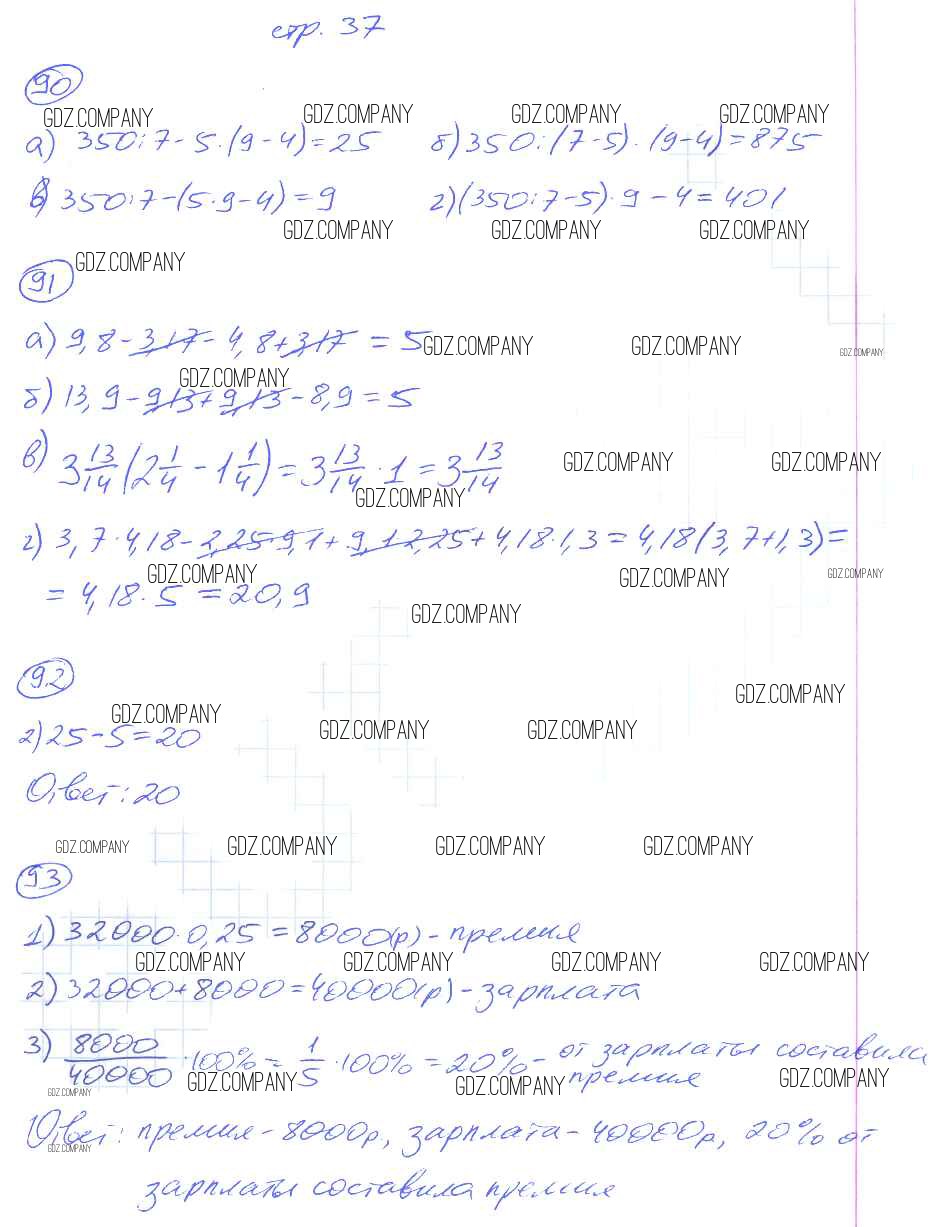 стр. 37
90
GDZ.COMPANY GDZ.COMPANY GDZ.COMPANY GDZ.COMPANY
а) 350:7-5·(9-4)=25 б) 350:(7-5)·(9-4)=875
в) 350:7-(5·9-4)=9 г) (350:7-5)·9-4=401
GDZ.COMPANY GDZ.COMPANY GDZ.COMPANY
GDZ.COMPANY
91
а) 9,8-3,17-4,8+3,17 = 5 GDZ.COMPANY GDZ.COMPANY GDZ.COMPANY
GDZ.COMPANY
б) 13,9-9,13+9,13-8,9=5
в) 3 13/14 (2 1/4 - 1 1/4) = 3 13/14 · 1 = 3 13/14 GDZ.COMPANY GDZ.COMPANY
GDZ.COMPANY
г) 3,7·4,18-2,25·9,1+9,1·2,25+4,18·1,3=4,18(3,7+1,3)=
GDZ.COMPANY GDZ.COMPANY GDZ.COMPANY
= 4,18·5 = 20,9
GDZ.COMPANY
92
GDZ.COMPANY
GDZ.COMPANY GDZ.COMPANY GDZ.COMPANY
г) 25-5=20
Ответ: 20
GDZ.COMPANY GDZ.COMPANY GDZ.COMPANY GDZ.COMPANY
93
1) 32000·0,25 = 8000(р) - премия
GDZ.COMPANY GDZ.COMPANY GDZ.COMPANY GDZ.COMPANY
2) 32000+8000=40000(р) - зарплата
3) 8000/40000 ·100% = 1/5 ·100% = 20% - от зарплаты составила
премия
GDZ.COMPANY GDZ.COMPANY GDZ.COMPANY
GDZ.COMPANY
Ответ: премия - 8000р, зарплата - 40000р, 20% от
GDZ.COMPANY
зарплаты составила премия